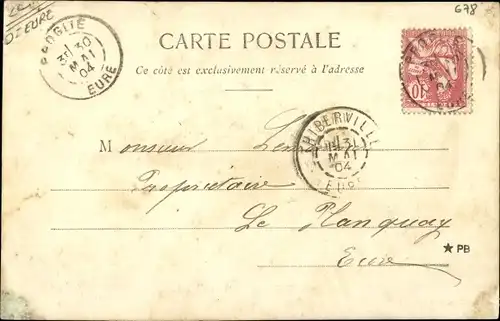 678
D'EURE
CARTE POSTALE
Ce côté est exclusivement réservé à l'adresse
3E 30
MAI
04
EURE
10
THIBERVILLE
31
MAI
04
EURE
Monsieur
Propriétaire
Le Planquay
Eure
★ PB